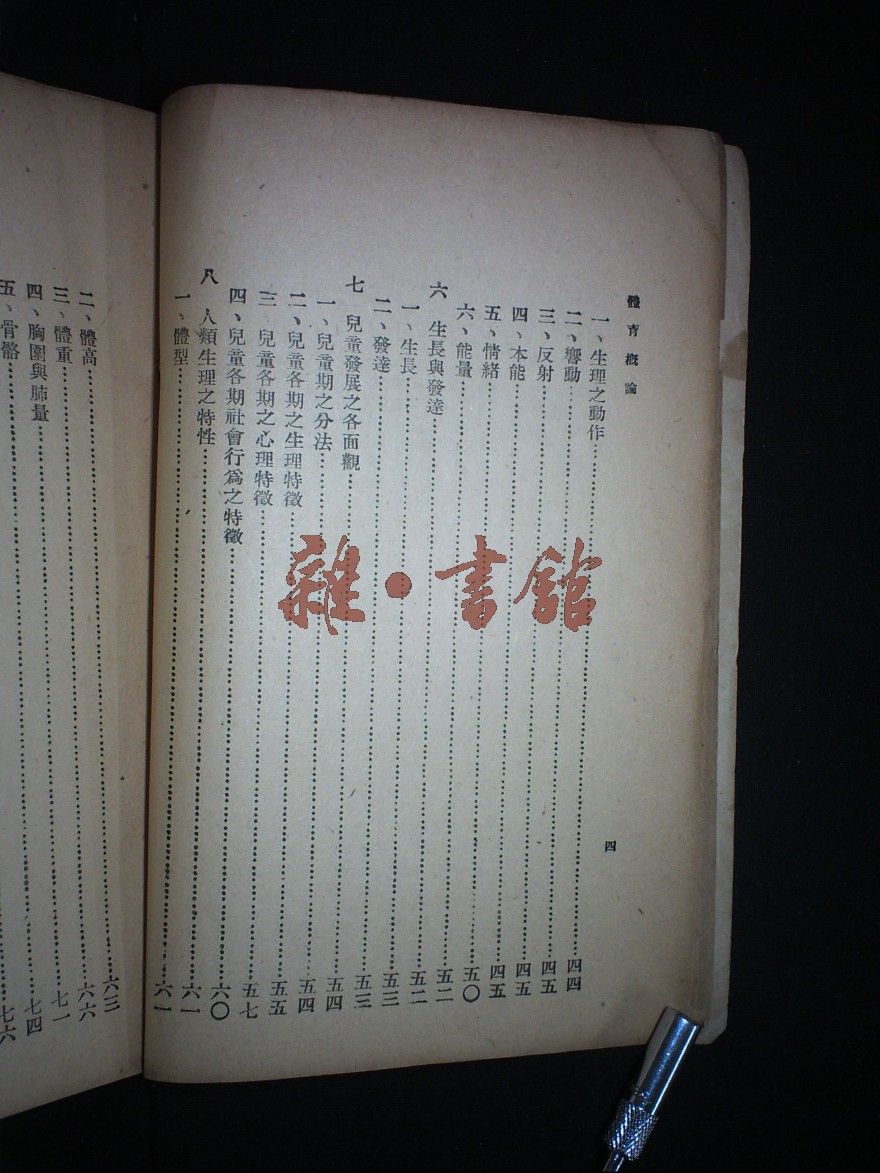 體育概論
四
一、生理之動作……四四
二、響動……四五
三、反射……四五
四、本能……四五
五、情緒……五〇
六、能量……五二
六 生長與發達……五二
一、生長……五三
二、發達……五三
七 兒童發展之各面觀……五四
一、兒童期之分法……五四
二、兒童各期之生理特徵……五五
三 兒童各期之心理特徵……五七
四、兒童各期社會行爲之特徵……六〇
八 人類生理之特性……六一
一、體型……六一
二、體高……六三
三、體重……六六
四、胸圍與肺量……七一
五、骨骼……七四
七六
雜·書館